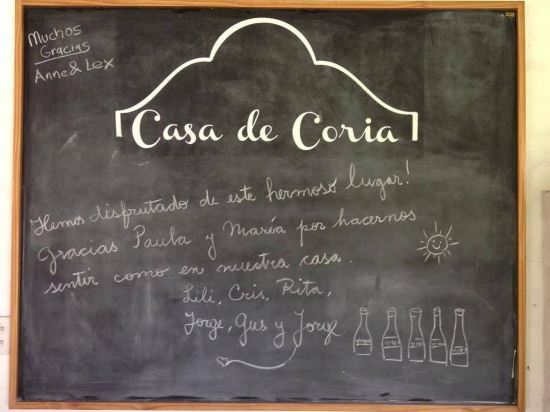 Muchos
Gracias
Anne & Lex
Casa de Coria
Hemos disfrutado de este hermoso lugar!
Gracias Paula y María por hacernos
sentir como en nuestra casa.
Lili, Cris, Rita,
Jorge, Gus y Jorge